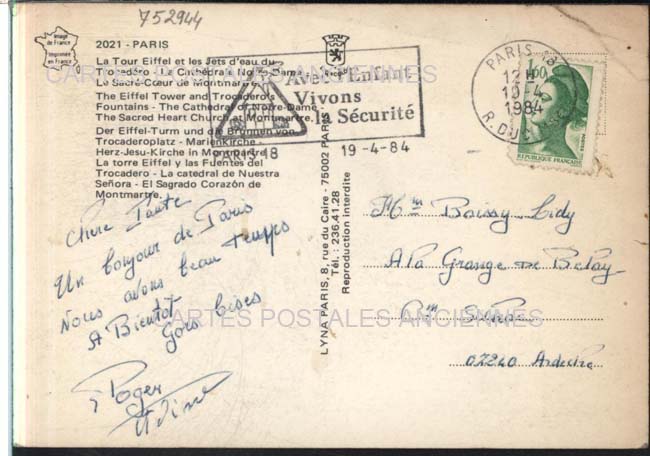 752944
Image
de France
Imprimée
en France
2021 - PARIS
La Tour Eiffel et les Jets d'eau du
Trocadéro - La Cathédrale Notre-Dame -
Le Sacré-Cœur de Montmartre.
The Eiffel Tower and Trocadero's
Fountains - The Cathedral of Notre-Dame -
The Sacred Heart Church at Montmartre.
Der Eiffel-Turm und die Brunnen von
Trocaderoplatz - Marienkirche -
Herz-Jesu-Kirche in Montmartre.
La torre Eiffel y las Fuentes del
Trocadero - La catedral de Nuestra
Señora - El Sagrado Corazón de
Montmartre.
Avec l'Enfant
Vivons
la Sécurité
PARIS 18
19-4-84
PARIS 18
12 H
1984
1,60
REPUBLIQUE FRANÇAISE
POSTES
CARTES POSTALES ANCIENNES
LYNA PARIS, 8, rue du Caire - 75002 PARIS
Tél. : 236.41.28
Reproduction interdite
Chère Tante
Un bonjour de Paris
Nous avons beau temps
A Bientôt
Gros bises
Roger
Mme Boissy Lidy
A La Grange de
07240 Ardèche
CARTES POSTALES ANCIENNES